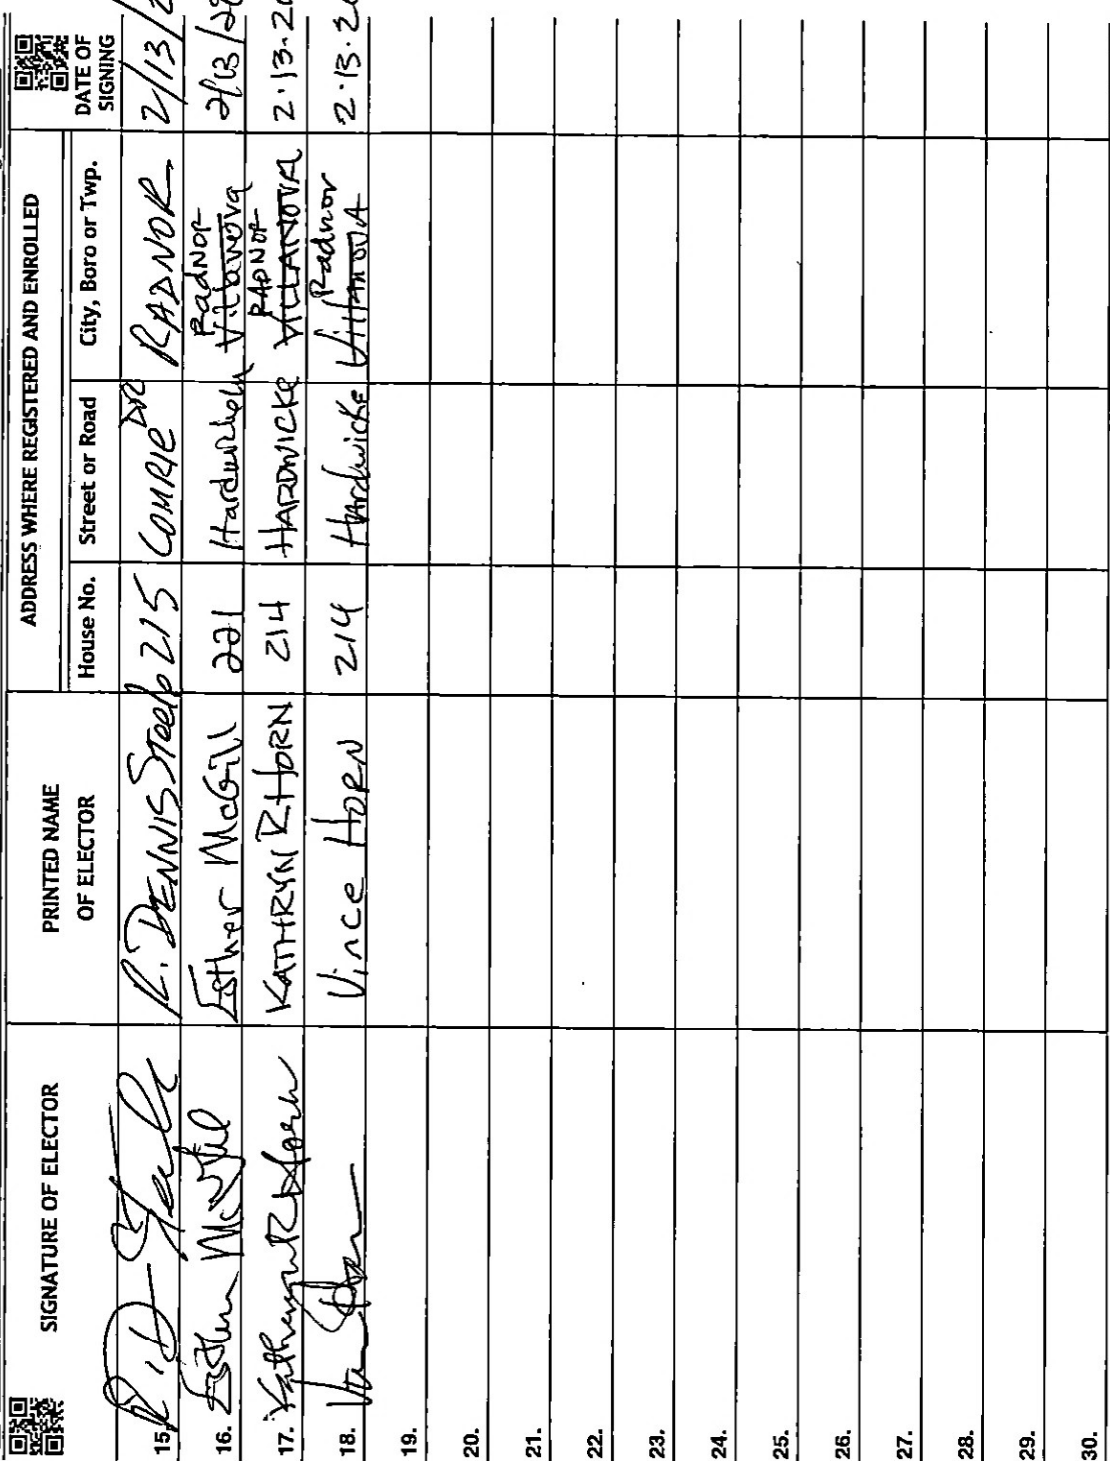 SIGNATURE OF ELECTOR
PRINTED NAME
OF ELECTOR
ADDRESS WHERE REGISTERED AND ENROLLED
House No. Street or Road City, Boro or Twp.
DATE OF
SIGNING
15. R. DENNIS Steele 215 COMRIE DR RADNOR 2/13/2
16. Esther McGill Esther McGill 221 Radnor Villanova 2/13/20
17. Kathryn R Horn KATHRYN R HORN 214 HARDWICKE RADNOR VILLANOVA 2.13.20
18. Vince Horn 214 Hardwicke Radnor Villanova 2.13.2
19.
20.
21.
22.
23.
24.
25.
26.
27.
28.
29.
30.